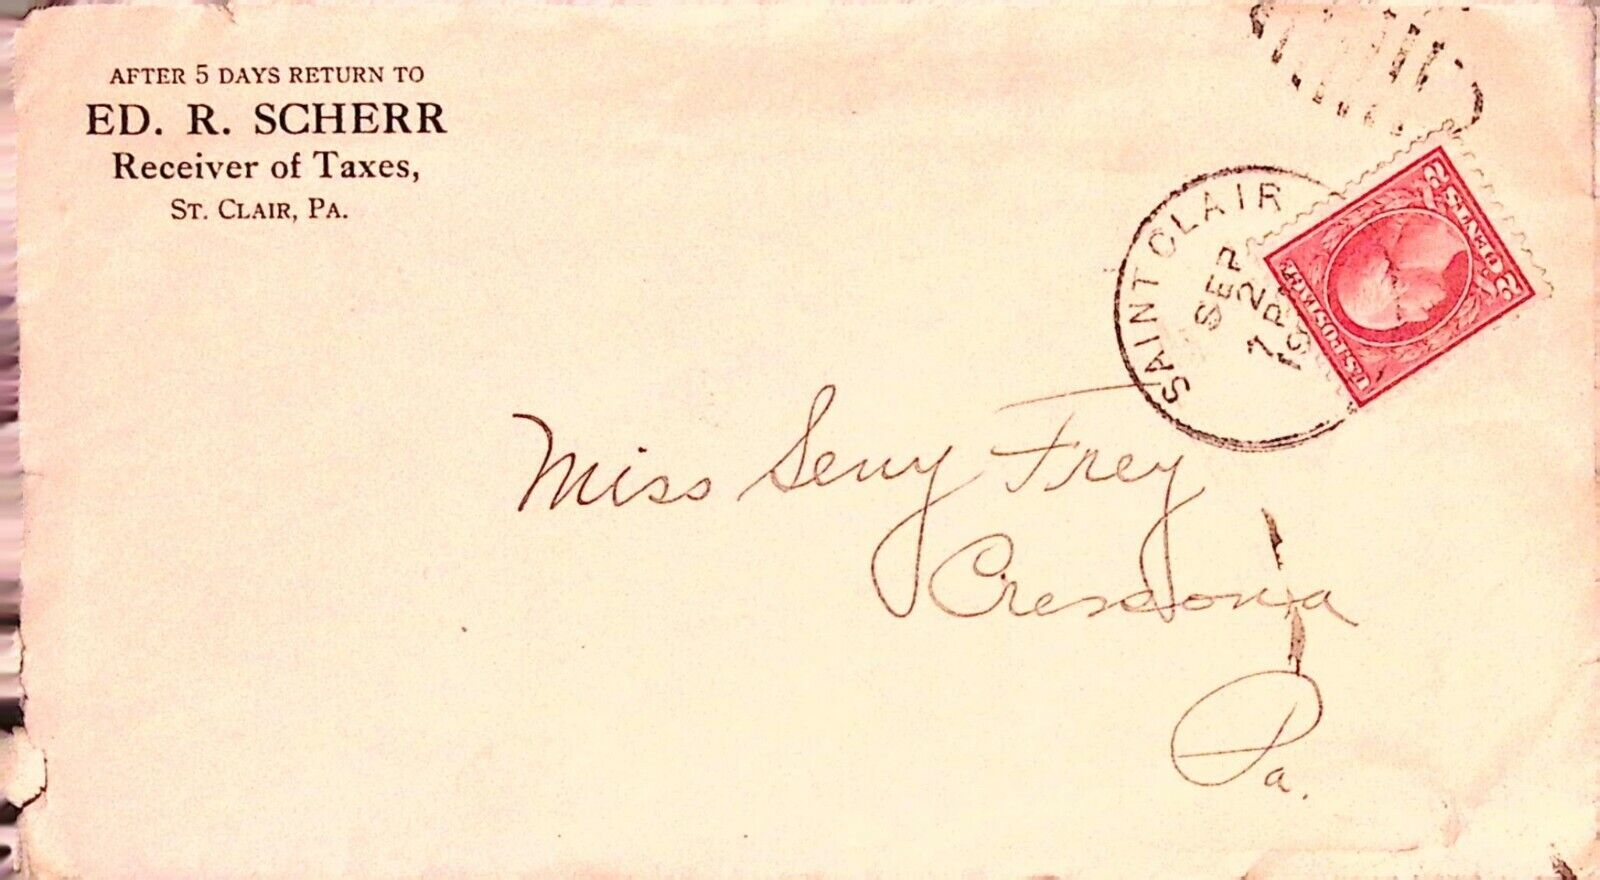 AFTER 5 DAYS RETURN TO
ED. R. SCHERR
Receiver of Taxes,
ST. CLAIR, PA.
SAINT CLAIR
SEP
2
7 P
19
2 CENTS 2
U.S. POSTAGE
Miss Seny Frey
Cressona
Pa.